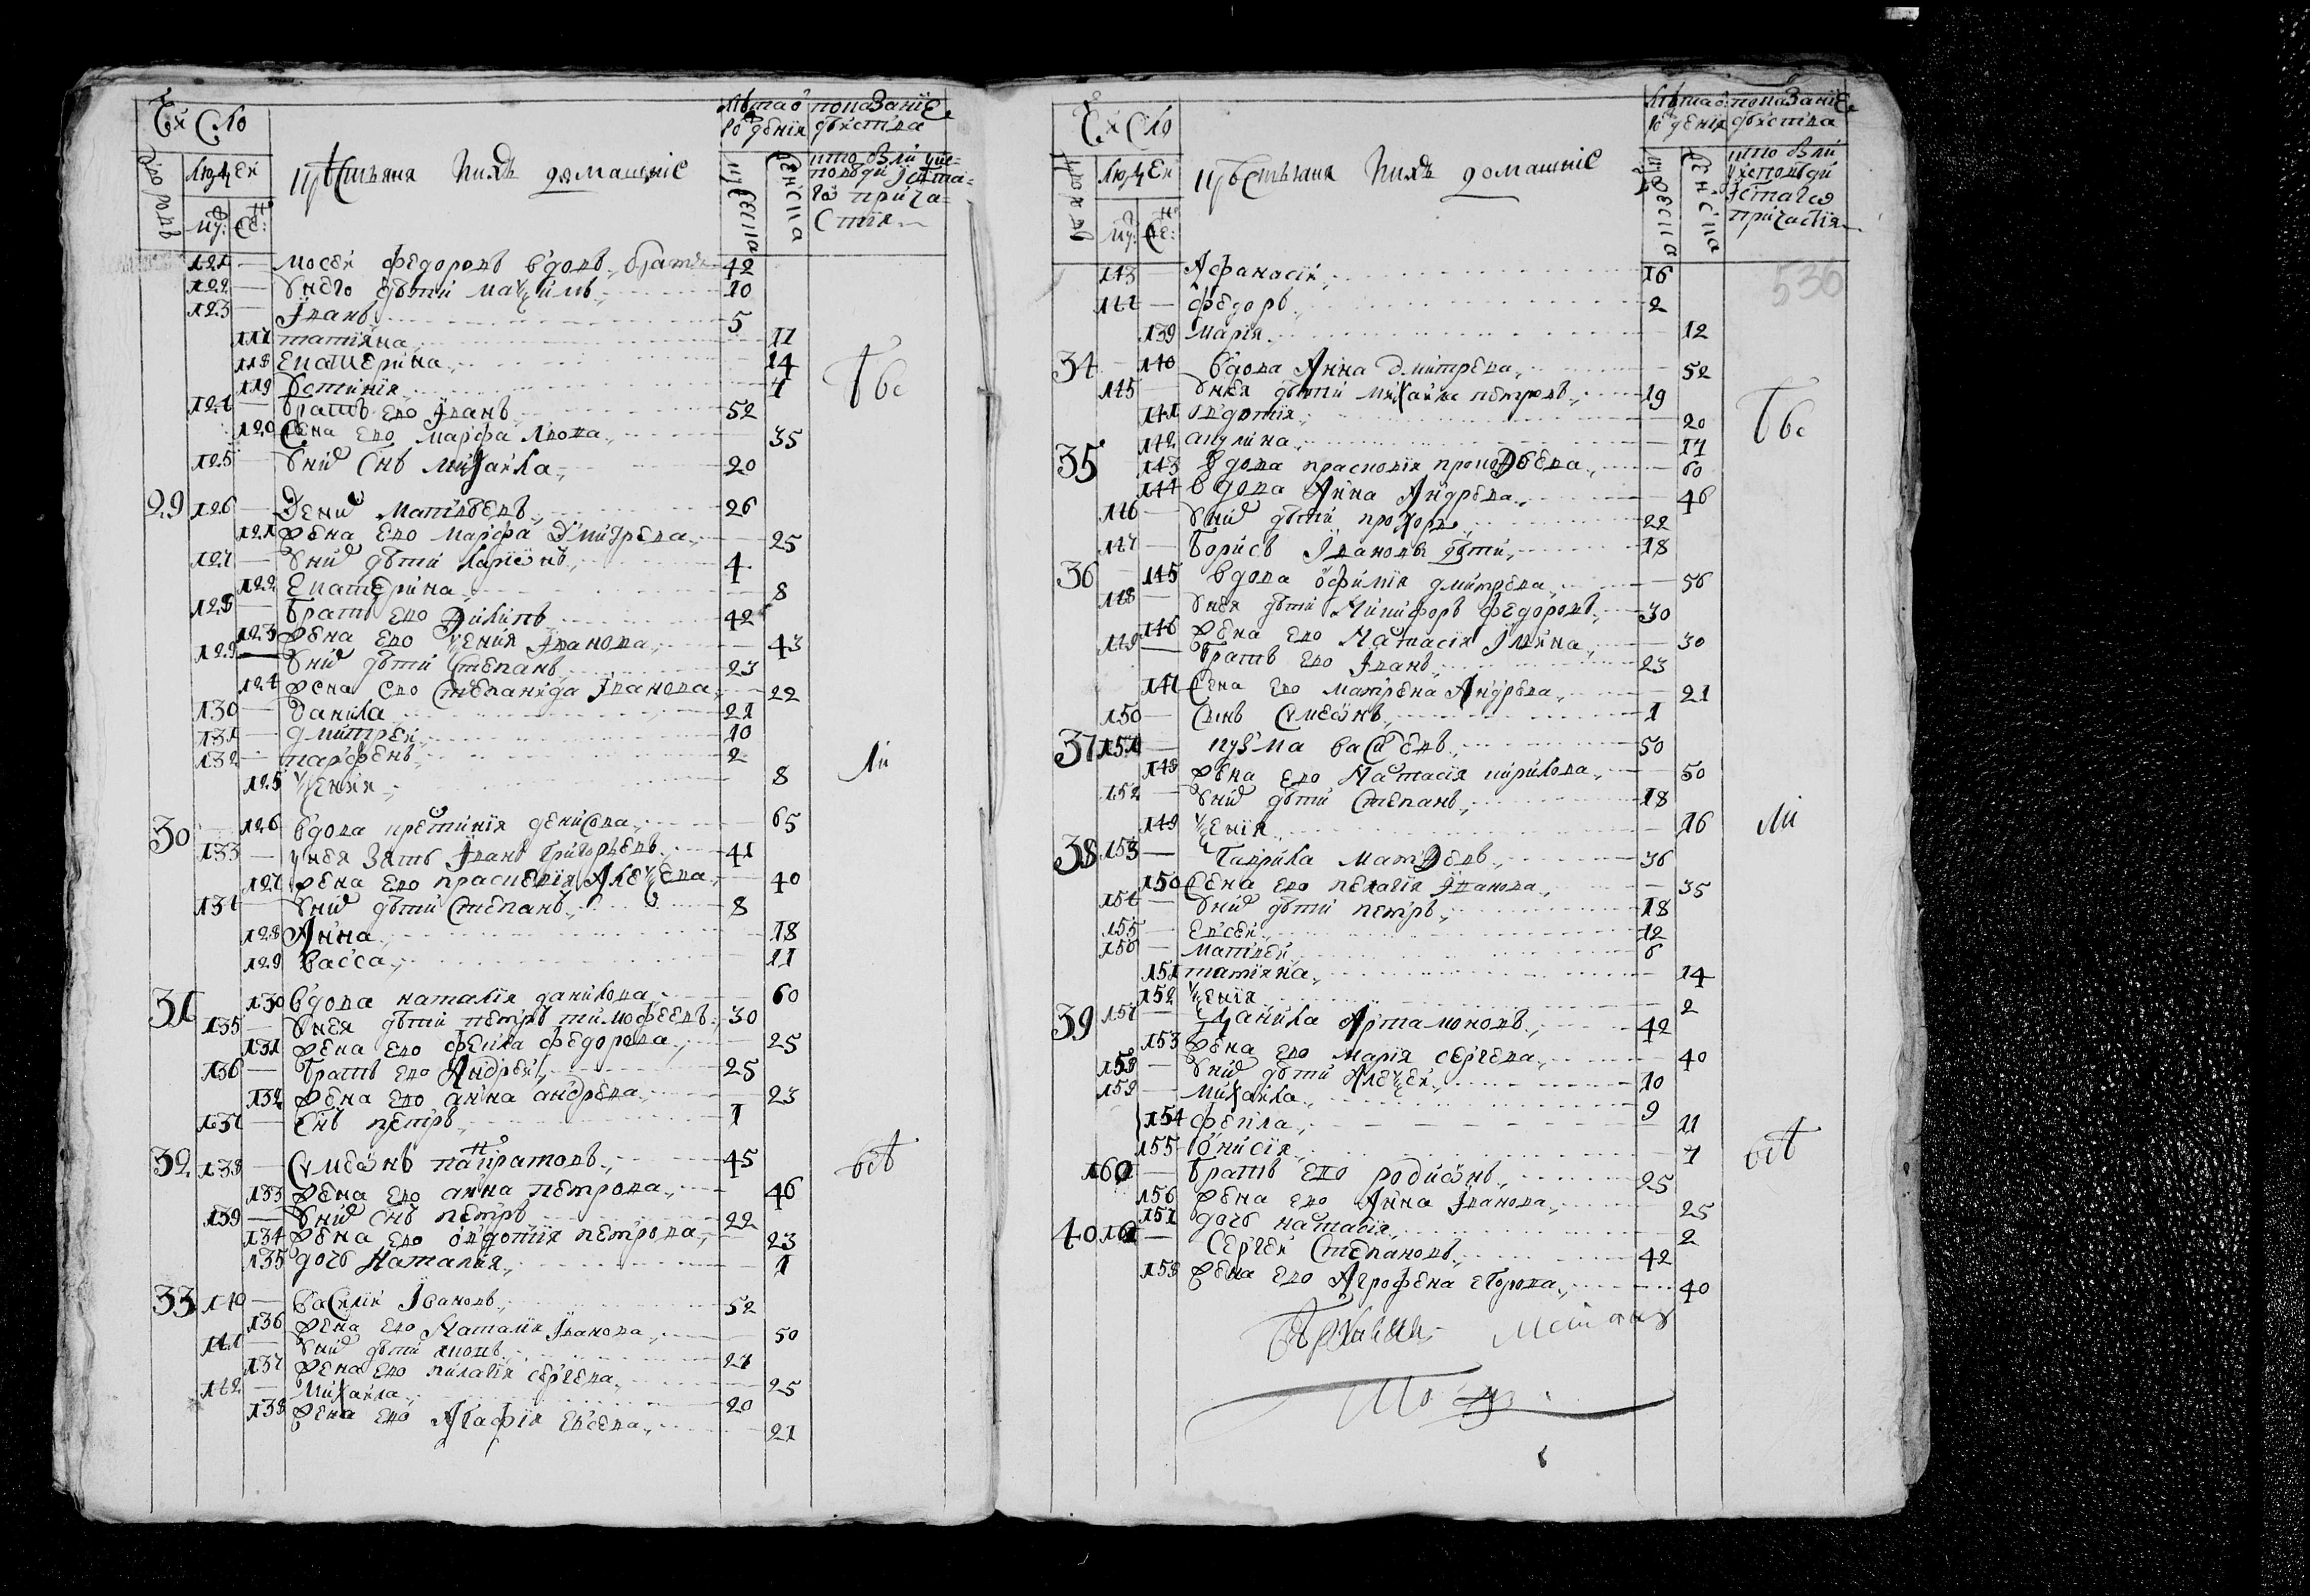 Число
крестьяне и ихъ домашние
лѣта от рождения
показание действа
дворовъ
людей
муж:
жен:
мужеска
женска
кто были у исповеди и святаго причастия
121 — Мосей Федоровъ вдовъ 42
122 — У него дѣти Маѯимъ 10
123 — Iванъ 5
117 Татияна 17
118 Екатерина 14
119 Устиния 7
124 — Братъ ево Iванъ 52
120 Жена ево Марфа 35
125 — У них снъ Михайла 20
29 126 — Денис Матвѣевъ 26
121 Жена ево Марфа Дмитрева 25
127 — У них дѣти Ларион 4
122 Екатерина 8
128 — Братъ ево Филипъ 42
123 Жена ево Ѯения Iванова 43
129 — У них дѣти Степанъ 23
124 Жена ево Степанида Iванова 22
130 — Данила 21
131 — Дмитрей 10
132 — Парфенъ 2
125 Ѯения 8
30 126 Вдова Денисова 65
133 — У нея зять Iванъ Григорьевъ 41
127 Жена ево Прасковия Алеѯеева 40
134 — У них дѣти Степанъ 8
128 Анна 18
129 Васса 11
31 130 Вдова Наталия Данилова 60
135 — У нея дѣти Петръ Тимофеевъ 30
131 Жена ево Фекла Федорова 25
136 — Братъ ево Андрей 25
132 Жена ево Анна Андрева 23
137 — Снъ Петръ 1
32 138 — Сѵмеонъ Панкратовъ 45
133 Жена ево Анна Петрова 46
139 — У них снъ Петръ 22
134 Жена ево Овдотия Петрова 23
135 Дочь Наталия 1
33 140 — Василий Iвановъ 52
136 Жена ево Наталия Iванова 50
141 — У них дѣти 27
137 Жена ево Пилагия Сергева 25
142 — Михайла 20
138 Жена ево Агафия Евсева 21
Тѣ
ли
всѣ
Число
крестьяне и ихъ домашние
лѣта от рождения
показание действа
дворовъ
людей
муж:
жен:
мужеска
женска
кто были у исповеди и святаго причастия
536
143 Афанасий 16
144 — Федоръ 2
139 Мария 12
34 140 Вдова Анна Дмитрева 52
145 — У нея дѣти Михайла Петровъ 19
141 Овдотия 20
142 Акулина 17
35 143 Вдова Прасковия 60
144 Вдова Анна Андрева 46
146 — У них дѣти Прохоръ 22
147 — Борисъ Iвановы дѣти 18
36 145 Вдова Офимия Дмитрева 56
148 — У нея дѣти Никифоръ Федоровъ 30
146 Жена ево Настасия Iлина 30
149 — Братъ ево Iванъ 23
147 Жена ево Матрена Андрева 21
150 — Сынъ Сѵмеонъ 1
37 151 — Кузма Васильевъ 50
148 Жена ево Настасия Кирилова 50
152 — У них дѣти Степанъ 18
149 Ѯения 16
38 153 — Гаврила Матвѣевъ 36
150 Жена ево Пелагия Iванова 35
154 — У них дѣти Петръ 18
155 — Евсей 12
156 — Матвей 6
151 Татияна 14
152 Ѯения 2
39 157 — Данила Артамоновъ 42
153 Жена ево Мария Сергева 40
158 — У них дѣти Алеѯей 10
159 — Михайла 9
154 Фекла 11
155 Онисия 7
160 — Братъ ево Родионъ 25
156 Жена ево Анна Iванова 25
157 Дочь Настасия 2
40 161 — Сергей Степановъ 42
158 Жена ево Агрофена Егорова 40
Тѣ
ли
всѣ